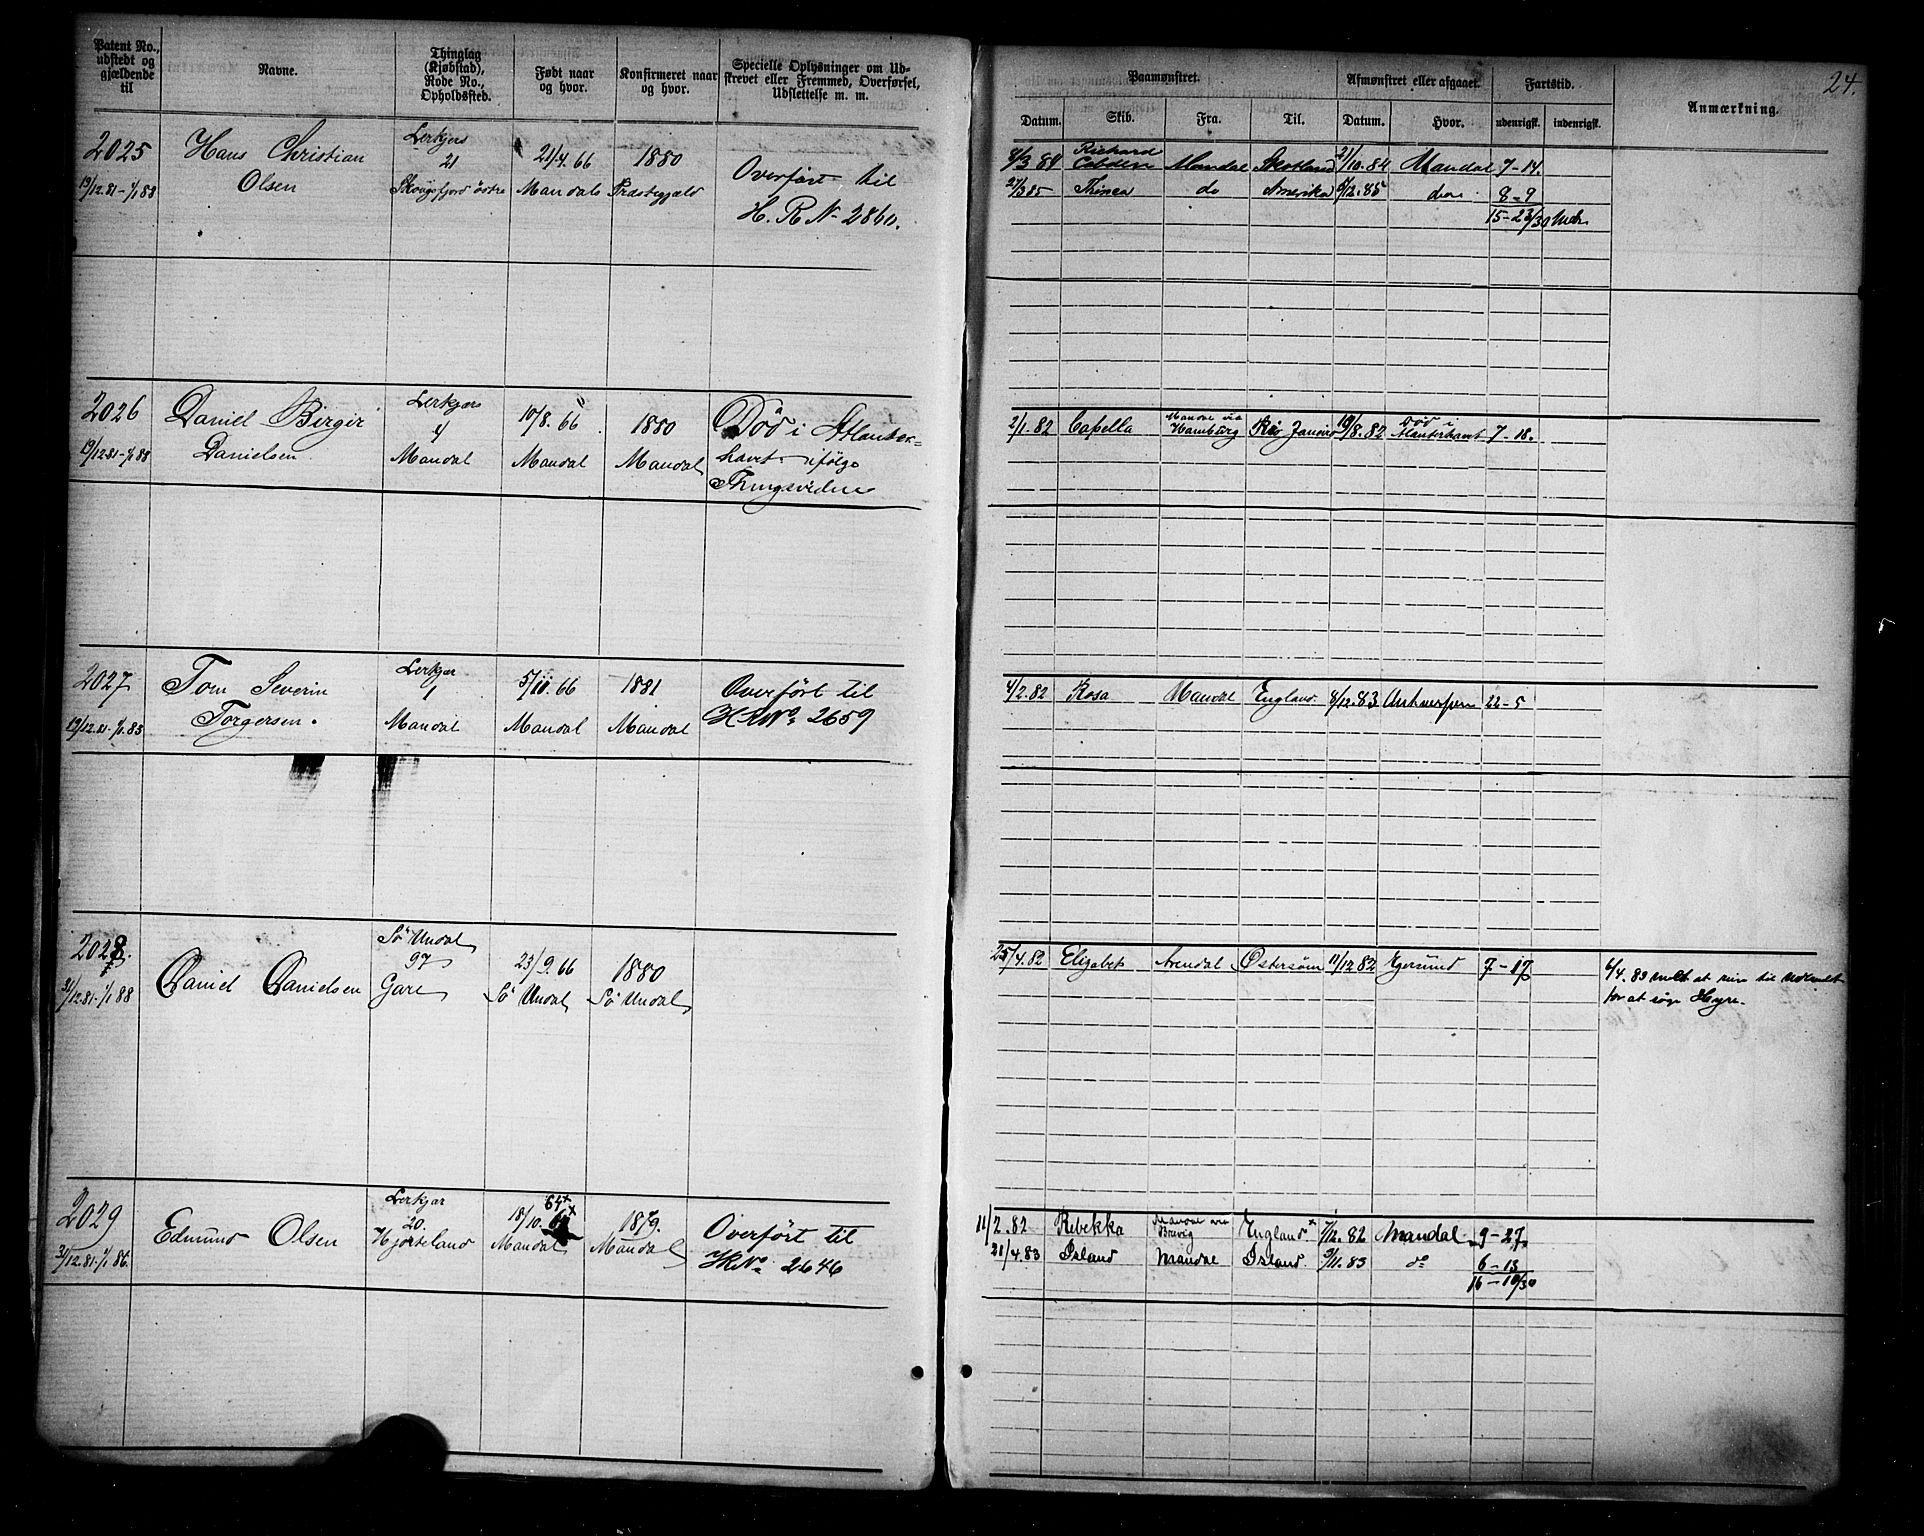 24.
Patent No., udstedt og gjældende til
Navne.
Thinglag (Kjøbstad), Rode No., Opholdssted.
Født naar og hvor.
Konfirmeret naar og hvor.
Specielle Oplysninger om Udskrevet eller Fremmed, Overførsel, Udslettelse m. m.
Paamønstret.
Afmønstret eller afgaaet.
Fartstid.
Anmærkning.
Datum.
Skib.
Fra.
Til.
Datum.
Hvor.
udenrigsk.
indenrigsk.
2025
19/12.81-1/1 89
Hans Christian
Olsen
21
21/4.66
Mandals
1880
Præstegjæld
Overført til
H. R No 2860.
4/3 84 Richard Cobden Mandal Skotland 21/10.84 Mandal 7-14.
27/3 85 Thinea do Amerika 5/12.85 do. 8-9
15-23/30 Mdr.
2026
19/12.81-1/1 88
Daniel Birgir
Danielsen
Lerkjær
4
Mandal
10/8.66
Mandal
1880
Mandal
Død i Atlanter-
havet ifølge
Thingsvidne
2/1.82 Capella Mandal via Hamburg Rio Janeiro 19/8.82 Død i Atlanterhavet 7-18.
2027
19/12.81-1/1.83
Tom Severin
Torgersen.
Lerkjær
1
Mandal
5/11.66
Mandal
1881
Mandal
Overført til
H.R No. 2659
4/2.82 Rosa Mandal England. 8/12.83 Antwerpen 22-5
2028.
31/12.81-1/1 88
Daniel Danielsen
Sø Undal
97
Gare
23/9.66
Sø Undal
1880
Sø Undal
25/4.82 Elizabet Arendal Østersøen 11/12 82 Egersund 7-17
6/4.83 meldt at
for at søge Hyre.
2029
31/12.81-1/1 86.
Edmund Olsen
Lerkjær
20.
Hjorteland
64+
18/10.
Mandal
1879.
Mandal
Overført til
HR No. 2646
11/2.82 Rebekka Mandal via Brevig England 7/12.82 Mandal 9-27.
21/4.83 Island Mandal Island. 9/11.83 do 6-13
16-10/30